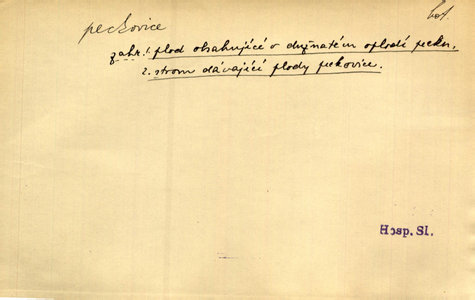 peckovice bot.
zahr. 1. plod obsahující v dužnatém oplodí pecku,
2. strom dávající plody peckovice.
Hosp. Sl.